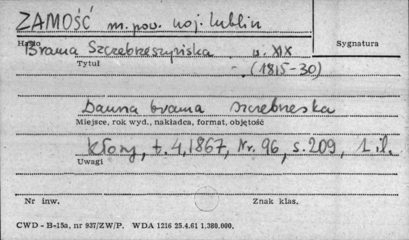 ZAMOŚĆ m. pow. woj. lublin
Hasło
Sygnatura
Brama Szczebrzeszyńska w. XIX
Tytuł
- (1815-30)
Dawna brama szczebrzeska
Miejsce, rok wyd., nakładca, format, objętość
Kłosy, t. 4, 1867, Nr. 96, s. 209, 1 il.
Uwagi
Nr inw.
Znak klas.
CWD - B-15a, nr 937/ZW/P. WDA 1216 25.4.61 1.380.000.